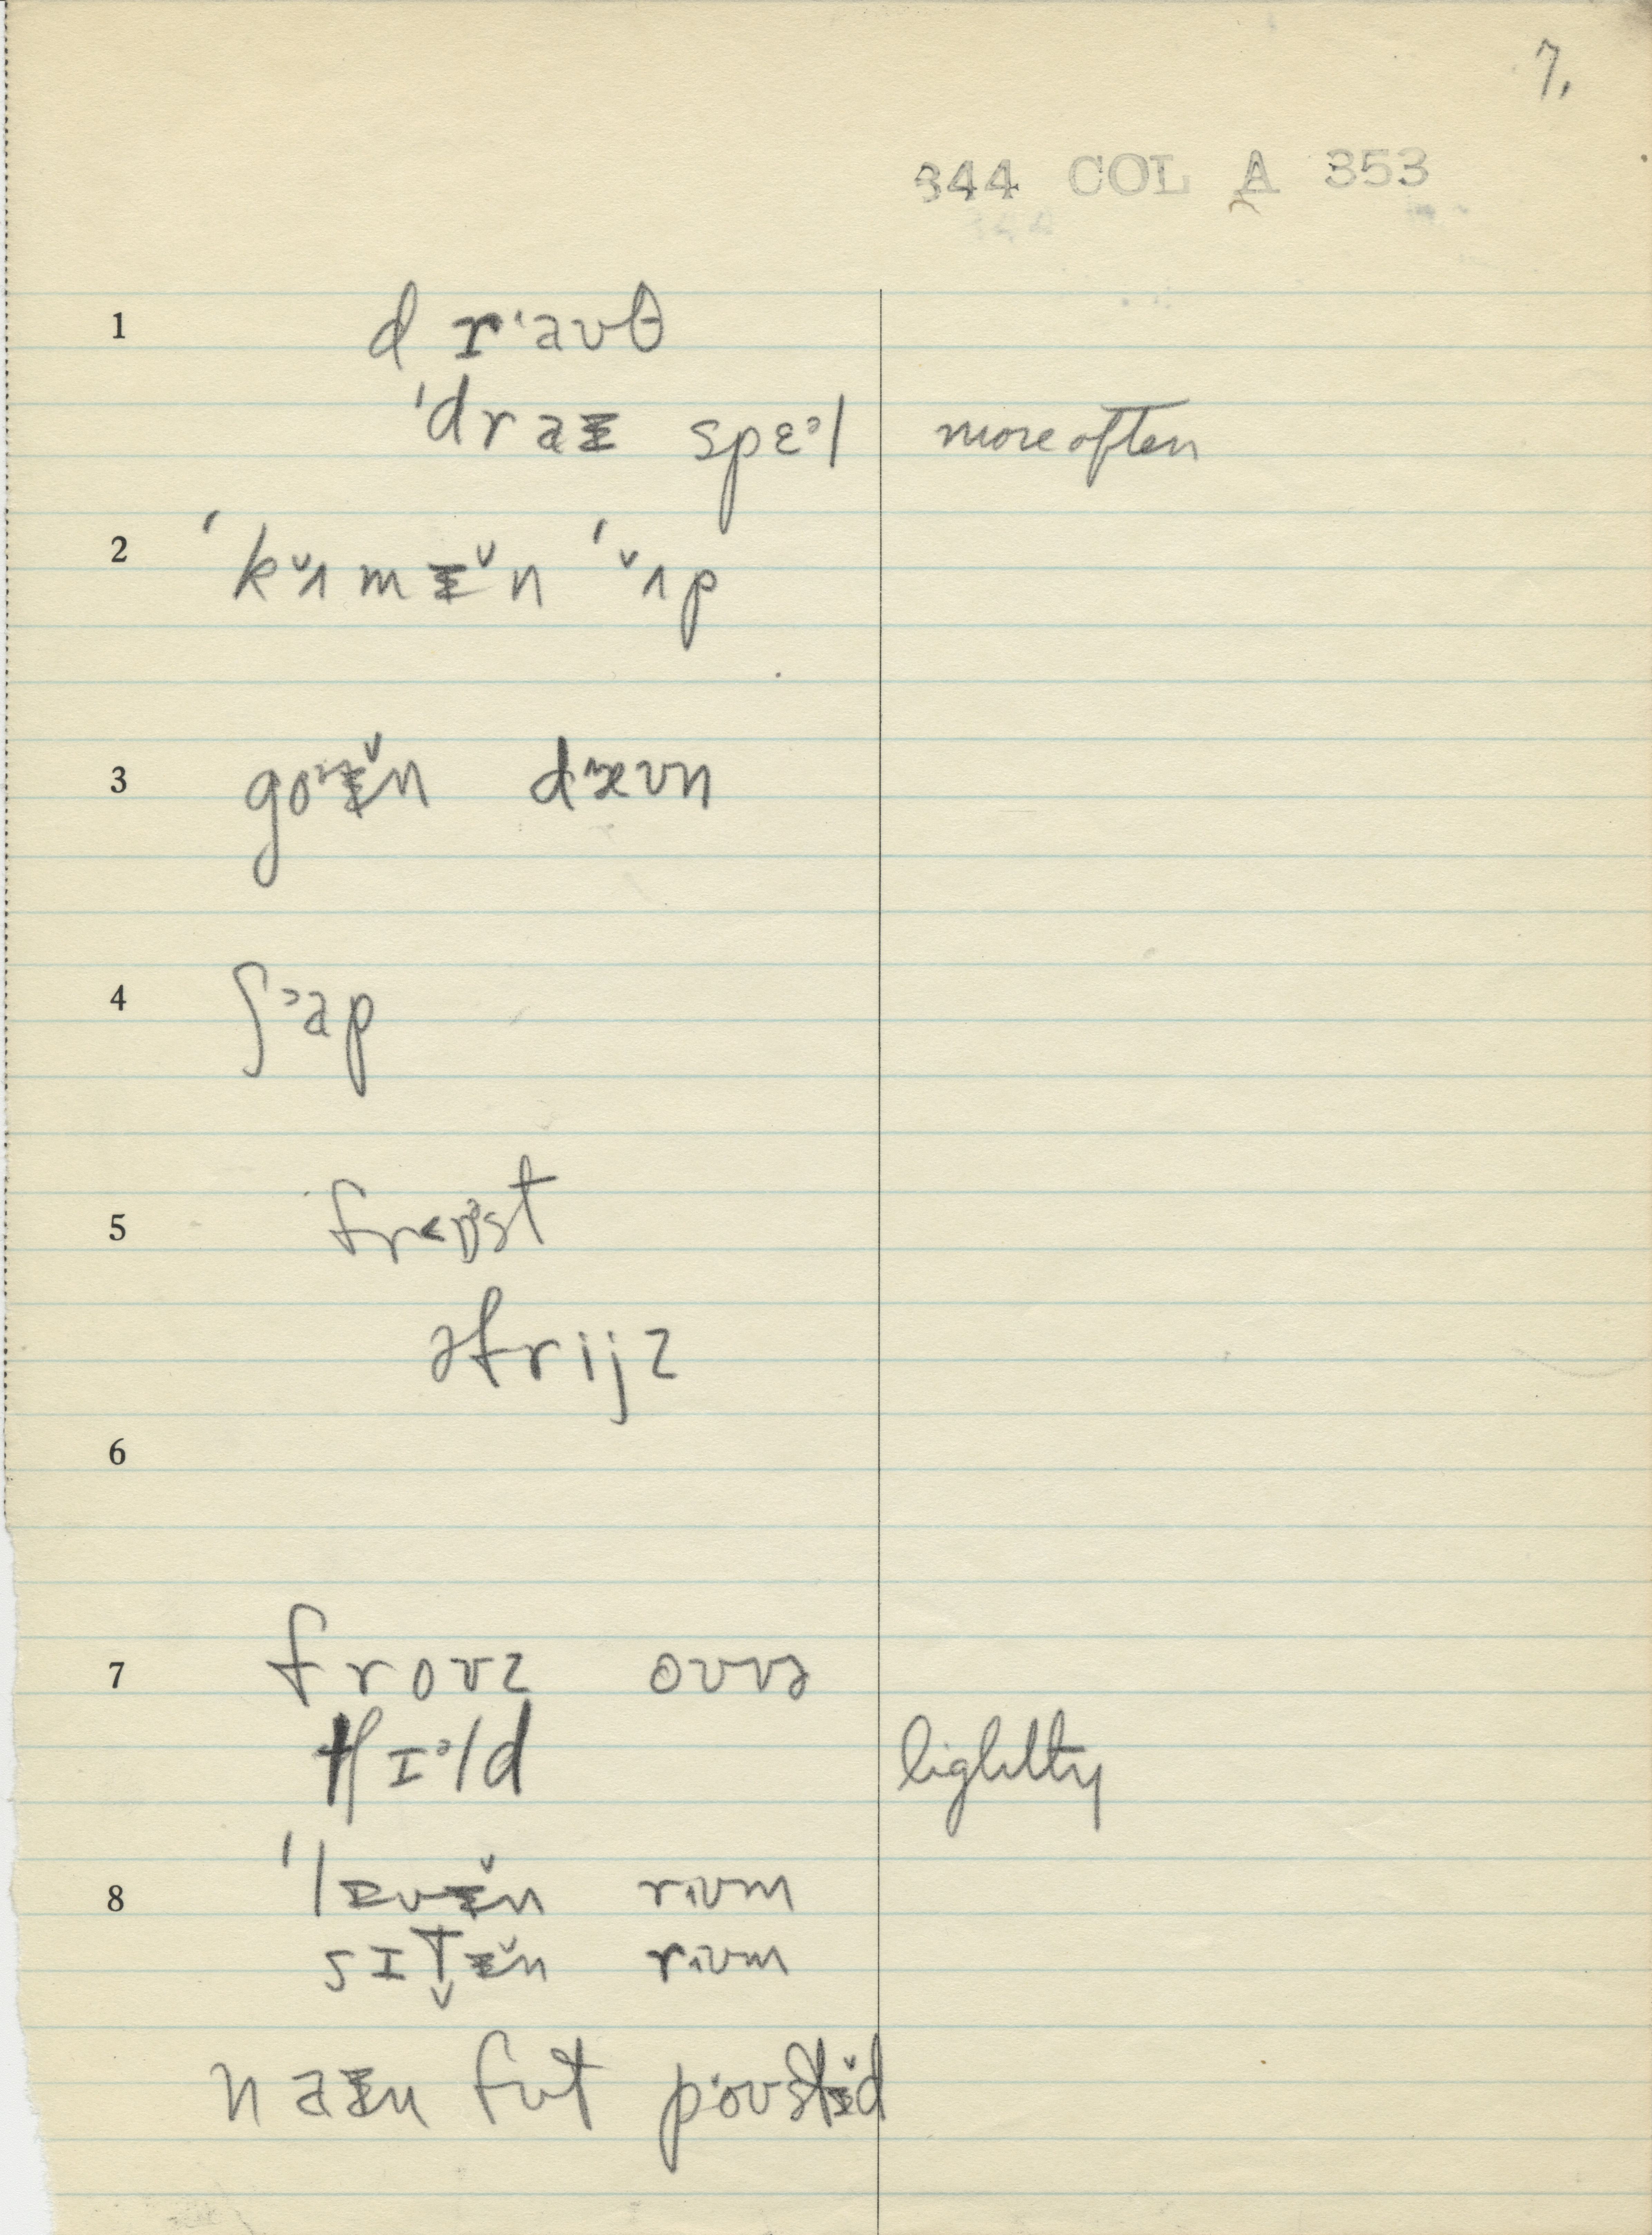 7.
344 COL A 353
1 d rˈaʊθ
ˈdraɪ spɛᵊl more often
2 ˈkʌ̆mɪ̆n ˈʌ̆p
3 goᶷɪ̆n dᵊæʊn
4 ʃᵊap
5
əfrijz
6
7 froʊz oʊvə
fɪᵊld lightly
8 ˈlɪvɪ̆n rɪʊm
sɪt̬ɪ̆n rɪʊm
naɪn fʊt poʊstɪ̆d